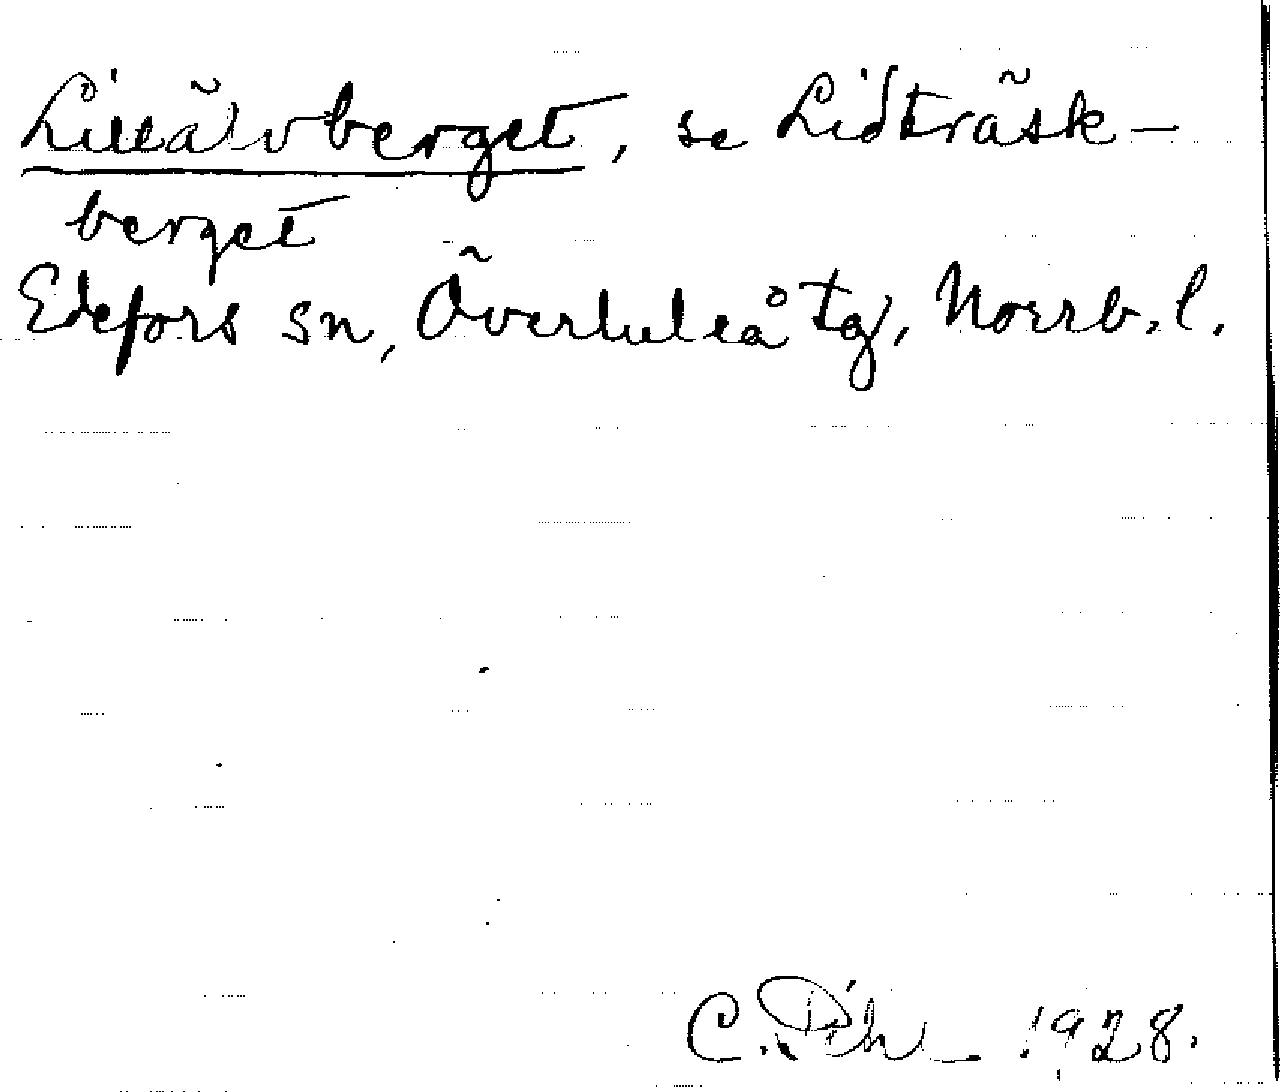 Lillälvberget, se Lidträsk-
berget
Edefors sn, Överluleå tg, Norrb. l.
C. Pihl 1928.